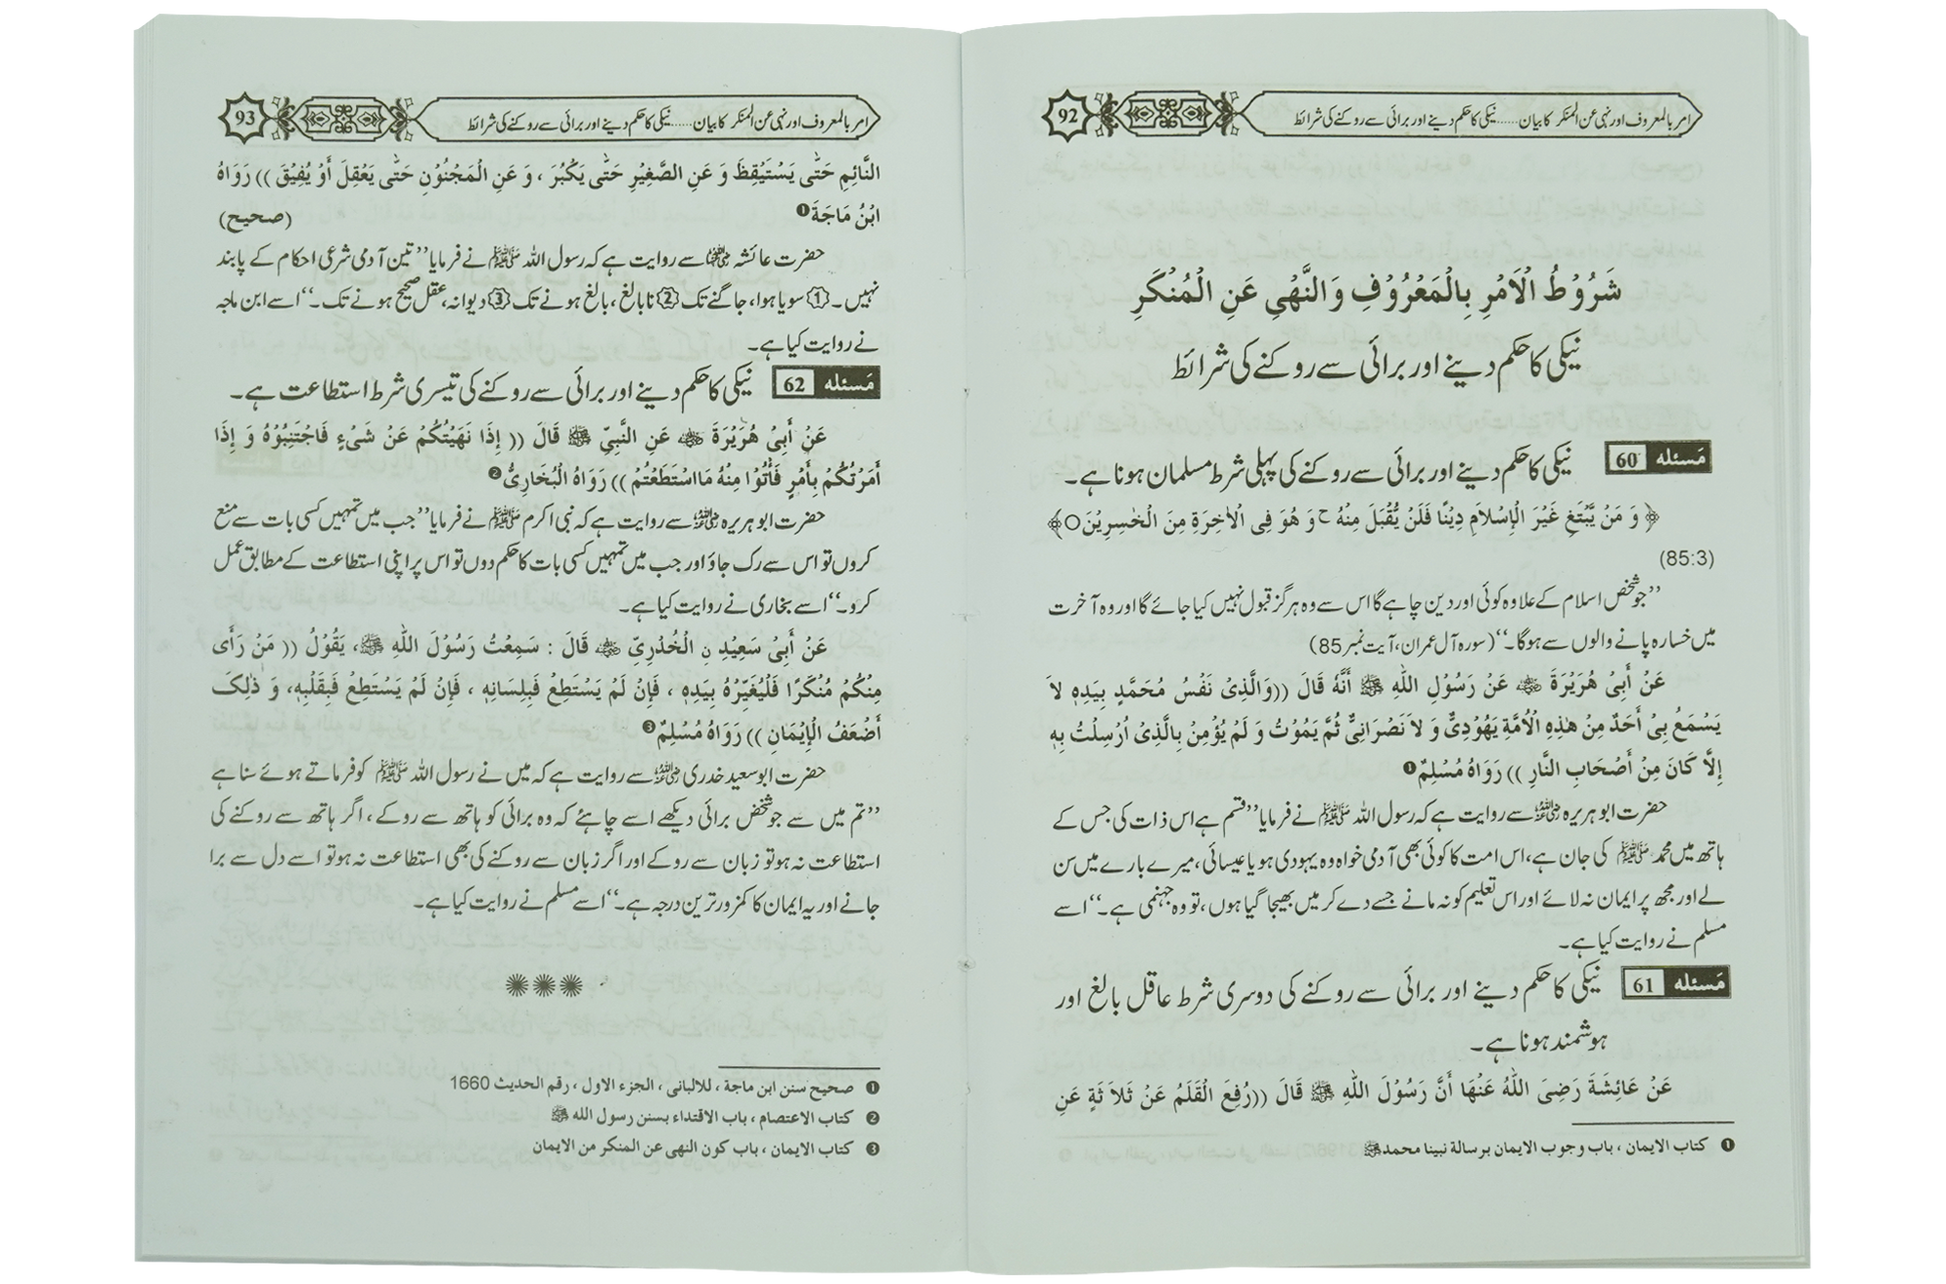 92 امر بالمعروف اور نہی عن المنکر کا بیان...... نیکی کا حکم دینے اور برائی سے روکنے کی شرائط
شَرُوْطُ الْاَمْرِ بِالْمَعْرُوْفِ وَالنَّهْیِ عَنِ الْمُنْکَرِ
نیکی کا حکم دینے اور برائی سے روکنے کی شرائط
مَسئله 60 نیکی کا حکم دینے اور برائی سے روکنے کی پہلی شرط مسلمان ہونا ہے۔
﴿ وَ مَنْ یَّبْتَغِ غَیْرَ الْاِسْلاَمِ دِیْنًا فَلَنْ یُّقْبَلَ مِنْهُ ج وَ هُوَ فِی الْاٰخِرَةِ مِنَ الْخٰسِرِیْنَ○﴾
(85:3)
’’جو شخص اسلام کے علاوہ کوئی اور دین چاہے گا اس سے وہ ہرگز قبول نہیں کیا جائے گا اور وہ آخرت
میں خسارہ پانے والوں سے ہوگا۔‘‘ (سورہ آل عمران، آیت نمبر 85)
عَنْ أَبِیْ هُرَیْرَةَ ﷺ عَنْ رَسُوْلِ اللّٰهِ ﷺ أَنَّهٗ قَالَ ((وَالَّذِیْ نَفْسُ مُحَمَّدٍ بِیَدِهٖ لاَ
یَسْمَعُ بِیْ أَحَدٌ مِنْ هٰذِهِ الْاُمَّةِ یَهُوْدِیٌّ وَ لاَ نَصْرَانِیٌّ ثُمَّ یَمُوْتُ وَ لَمْ یُؤْمِنْ بِالَّذِیْ اُرْسِلْتُ بِهٖ
اِلَّا کَانَ مِنْ أَصْحَابِ النَّارِ )) رَوَاهُ مُسْلِمٌ❶
حضرت ابو ہریرہ رضی اللہ عنہ سے روایت ہے کہ رسول اللہ ﷺ نے فرمایا ’’قسم ہے اس ذات کی جس کے
ہاتھ میں محمد ﷺ کی جان ہے، اس امت کا کوئی بھی آدمی خواہ وہ یہودی ہو یا عیسائی، میرے بارے میں سن
لے اور مجھ پر ایمان نہ لائے اور اس تعلیم کو نہ مانے جسے دے کر میں بھیجا گیا ہوں، تو وہ جہنمی ہے۔‘‘ اسے
مسلم نے روایت کیا ہے۔
مَسئله 61 نیکی کا حکم دینے اور برائی سے روکنے کی دوسری شرط عاقل بالغ اور
ہوشمند ہونا ہے۔
عَنْ عَائِشَةَ رَضِیَ اللّٰهُ عَنْهَا أَنَّ رَسُوْلَ اللّٰهِ ﷺ قَالَ ((رُفِعَ الْقَلَمُ عَنْ ثَلاَ ثَةٍ عَنِ
❶ کتاب الایمان ، باب وجوب الایمان برسالة نبینا محمد ﷺ
93 امر بالمعروف اور نہی عن المنکر کا بیان...... نیکی کا حکم دینے اور برائی سے روکنے کی شرائط
النَّائِمِ حَتّٰی یَسْتَیْقِظَ وَ عَنِ الصَّغِیْرِ حَتّٰی یَکْبُرَ ، وَ عَنِ الْمَجْنُوْنِ حَتّٰی یَعْقِلَ أَوْ یُفِیْقَ )) رَوَاهُ
ابْنُ مَاجَةَ❶ (صحیح)
حضرت عائشہ رضی اللہ عنہا سے روایت ہے کہ رسول اللہ ﷺ نے فرمایا ’’تین آدمی شرعی احکام کے پابند
نہیں۔ 1 سویا ہوا، جاگنے تک 2 نابالغ، بالغ ہونے تک 3 دیوانہ، عقل صحیح ہونے تک۔‘‘ اسے ابن ماجہ
نے روایت کیا ہے۔
مَسئله 62 نیکی کا حکم دینے اور برائی سے روکنے کی تیسری شرط استطاعت ہے۔
عَنْ أَبِیْ هُرَیْرَةَ رضی اللہ عنہ عَنِ النَّبِیِّ ﷺ قَالَ (( إِذَا نَهَیْتُکُمْ عَنْ شَیْءٍ فَاجْتَنِبُوْهُ وَ إِذَا
أَمَرْتُکُمْ بِأَمْرٍ فَأْتُوْا مِنْهُ مَااسْتَطَعْتُمْ )) رَوَاهُ الْبُخَارِیُّ❷
حضرت ابو ہریرہ رضی اللہ عنہ سے روایت ہے کہ نبی اکرم ﷺ نے فرمایا ’’جب میں تمہیں کسی بات سے منع
کروں تو اس سے رک جاؤ اور جب میں تمہیں کسی بات کا حکم دوں تو اس پر اپنی استطاعت کے مطابق عمل
کرو۔‘‘ اسے بخاری نے روایت کیا ہے۔
عَنْ أَبِیْ سَعِیْدِ نِ الْخُدْرِیِّ رضی اللہ عنہ قَالَ : سَمِعْتُ رَسُوْلَ اللّٰهِ ﷺ، یَقُوْلُ (( مَنْ رَأَی
مِنْکُمْ مُنْکَرًا فَلْیُغَیِّرْهُ بِیَدِهٖ ، فَإِنْ لَمْ یَسْتَطِعْ فَبِلِسَانِهٖ ، فَإِنْ لَمْ یَسْتَطِعْ فَبِقَلْبِهٖ، وَ ذٰلِکَ
أَضْعَفُ الْإِیْمَانِ )) رَوَاهُ مُسْلِمٌ❸
حضرت ابو سعید خدری رضی اللہ عنہ سے روایت ہے کہ میں نے رسول اللہ ﷺ کو فرماتے ہوئے سنا ہے
’’تم میں سے جو شخص برائی دیکھے اسے چاہئے کہ وہ برائی کو ہاتھ سے روکے، اگر ہاتھ سے روکنے کی
استطاعت نہ ہو تو زبان سے روکے اور اگر زبان سے روکنے کی بھی استطاعت نہ ہو تو اسے دل سے برا
جانے اور یہ ایمان کا کمزور ترین درجہ ہے۔‘‘ اسے مسلم نے روایت کیا ہے۔
❶ صحیح سنن ابن ماجة ، للالبانی ، الجزء الاول ، رقم الحدیث 1660
❷ کتاب الاعتصام ، باب الاقتداء بسنن رسول الله ﷺ
❸ کتاب الایمان ، باب کون النهی عن المنکر من الایمان